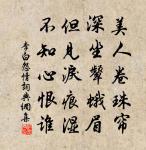 美人卷珠帘
深坐颦蛾眉
但见淚痕湿
不知心恨谁
李白怨情詞典網集